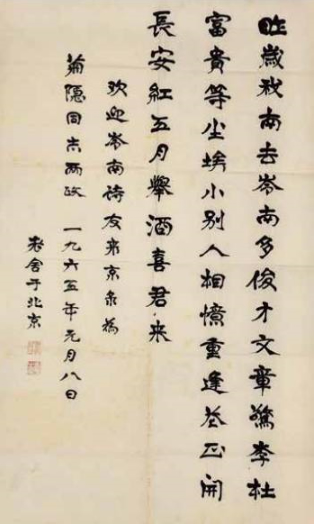 昨歲我南去岺南多俊才文章驚李杜
富貴等尘埃小别人相憶重逢花正開
長安紅五月舉酒喜君来
欢迎岺南诗友来京
菊隐同志两政 一九六五年元月八日
老舍于北京